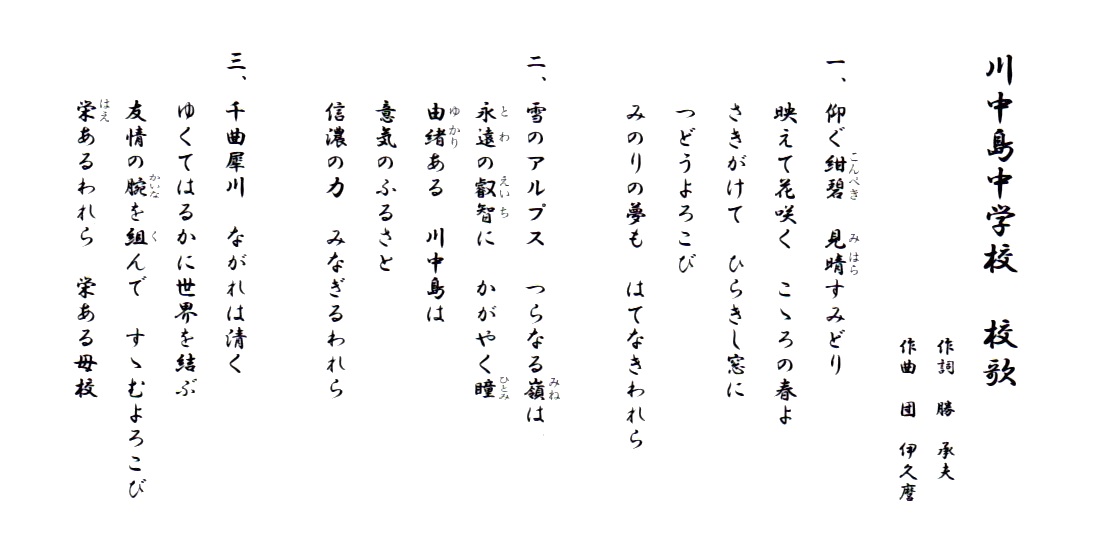 川中島中学校　校歌
作詞　勝　承夫
作曲　団　伊久麿
一、仰ぐ紺碧　見晴すみどり
映えて花咲く　こゝろの春よ
さきがけて　ひらきし窓に
つどうよろこび
みのりの夢も　はてなきわれら
二、雪のアルプス　つらなる嶺は
永遠の叡智に　かがやく瞳
由緒ある　川中島は
意気のふるさと
信濃の力　みなぎるわれら
三、千曲犀川　ながれは清く
ゆくてはるかに世界を結ぶ
友情の腕を組んで　すゝむよろこび
栄あるわれら　栄ある母校